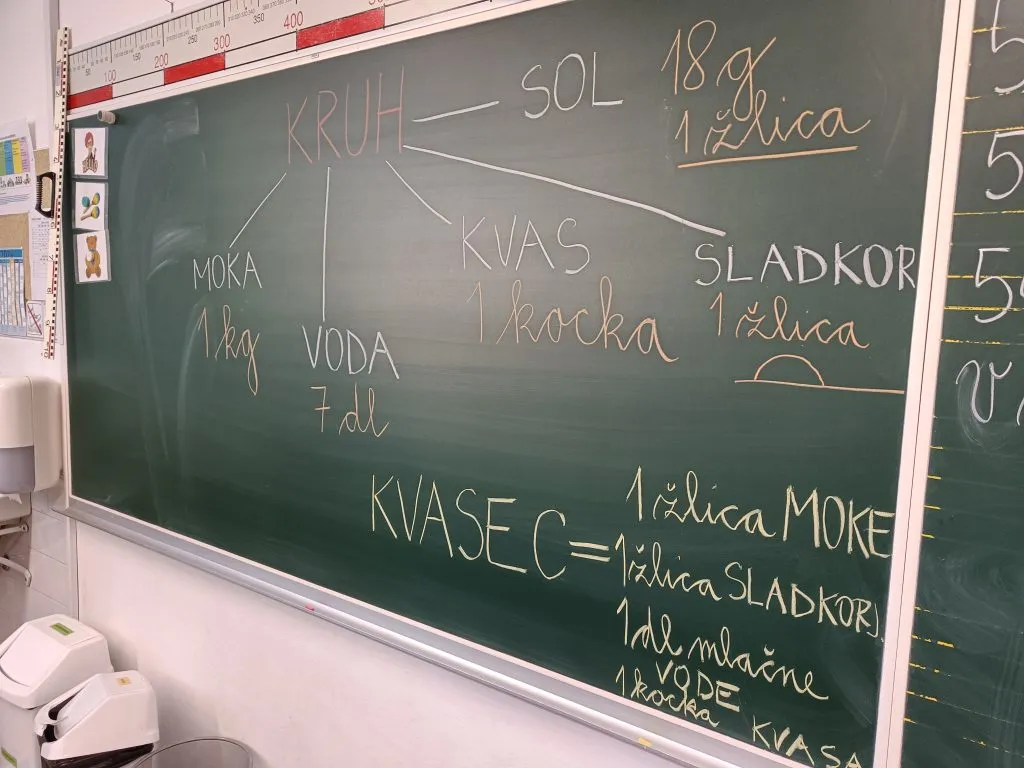 100 200 300 400
50 150 250 350
KRUH
SOL
18 g
1 žlica
MOKA
1 kg
VODA
7 dl
KVAS
1 kocka
SLADKOR
1 žlica
KVASEC =
1 žlica MOKE
1 žlica SLADKORJ
1 dl mlačne
VODE
1 kocka KVASA
5
5